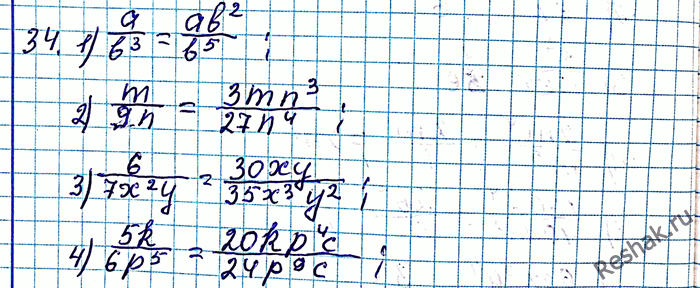 34. 1) a/b³ = ab²/b⁵ ;
2) m/9n = 3mn³/27n⁴ ;
3) 6/7x²y = 30xy/35x³y² ;
4) 5k/6p⁵ = 20kp⁴c/24p⁹c ;
Reshak.ru